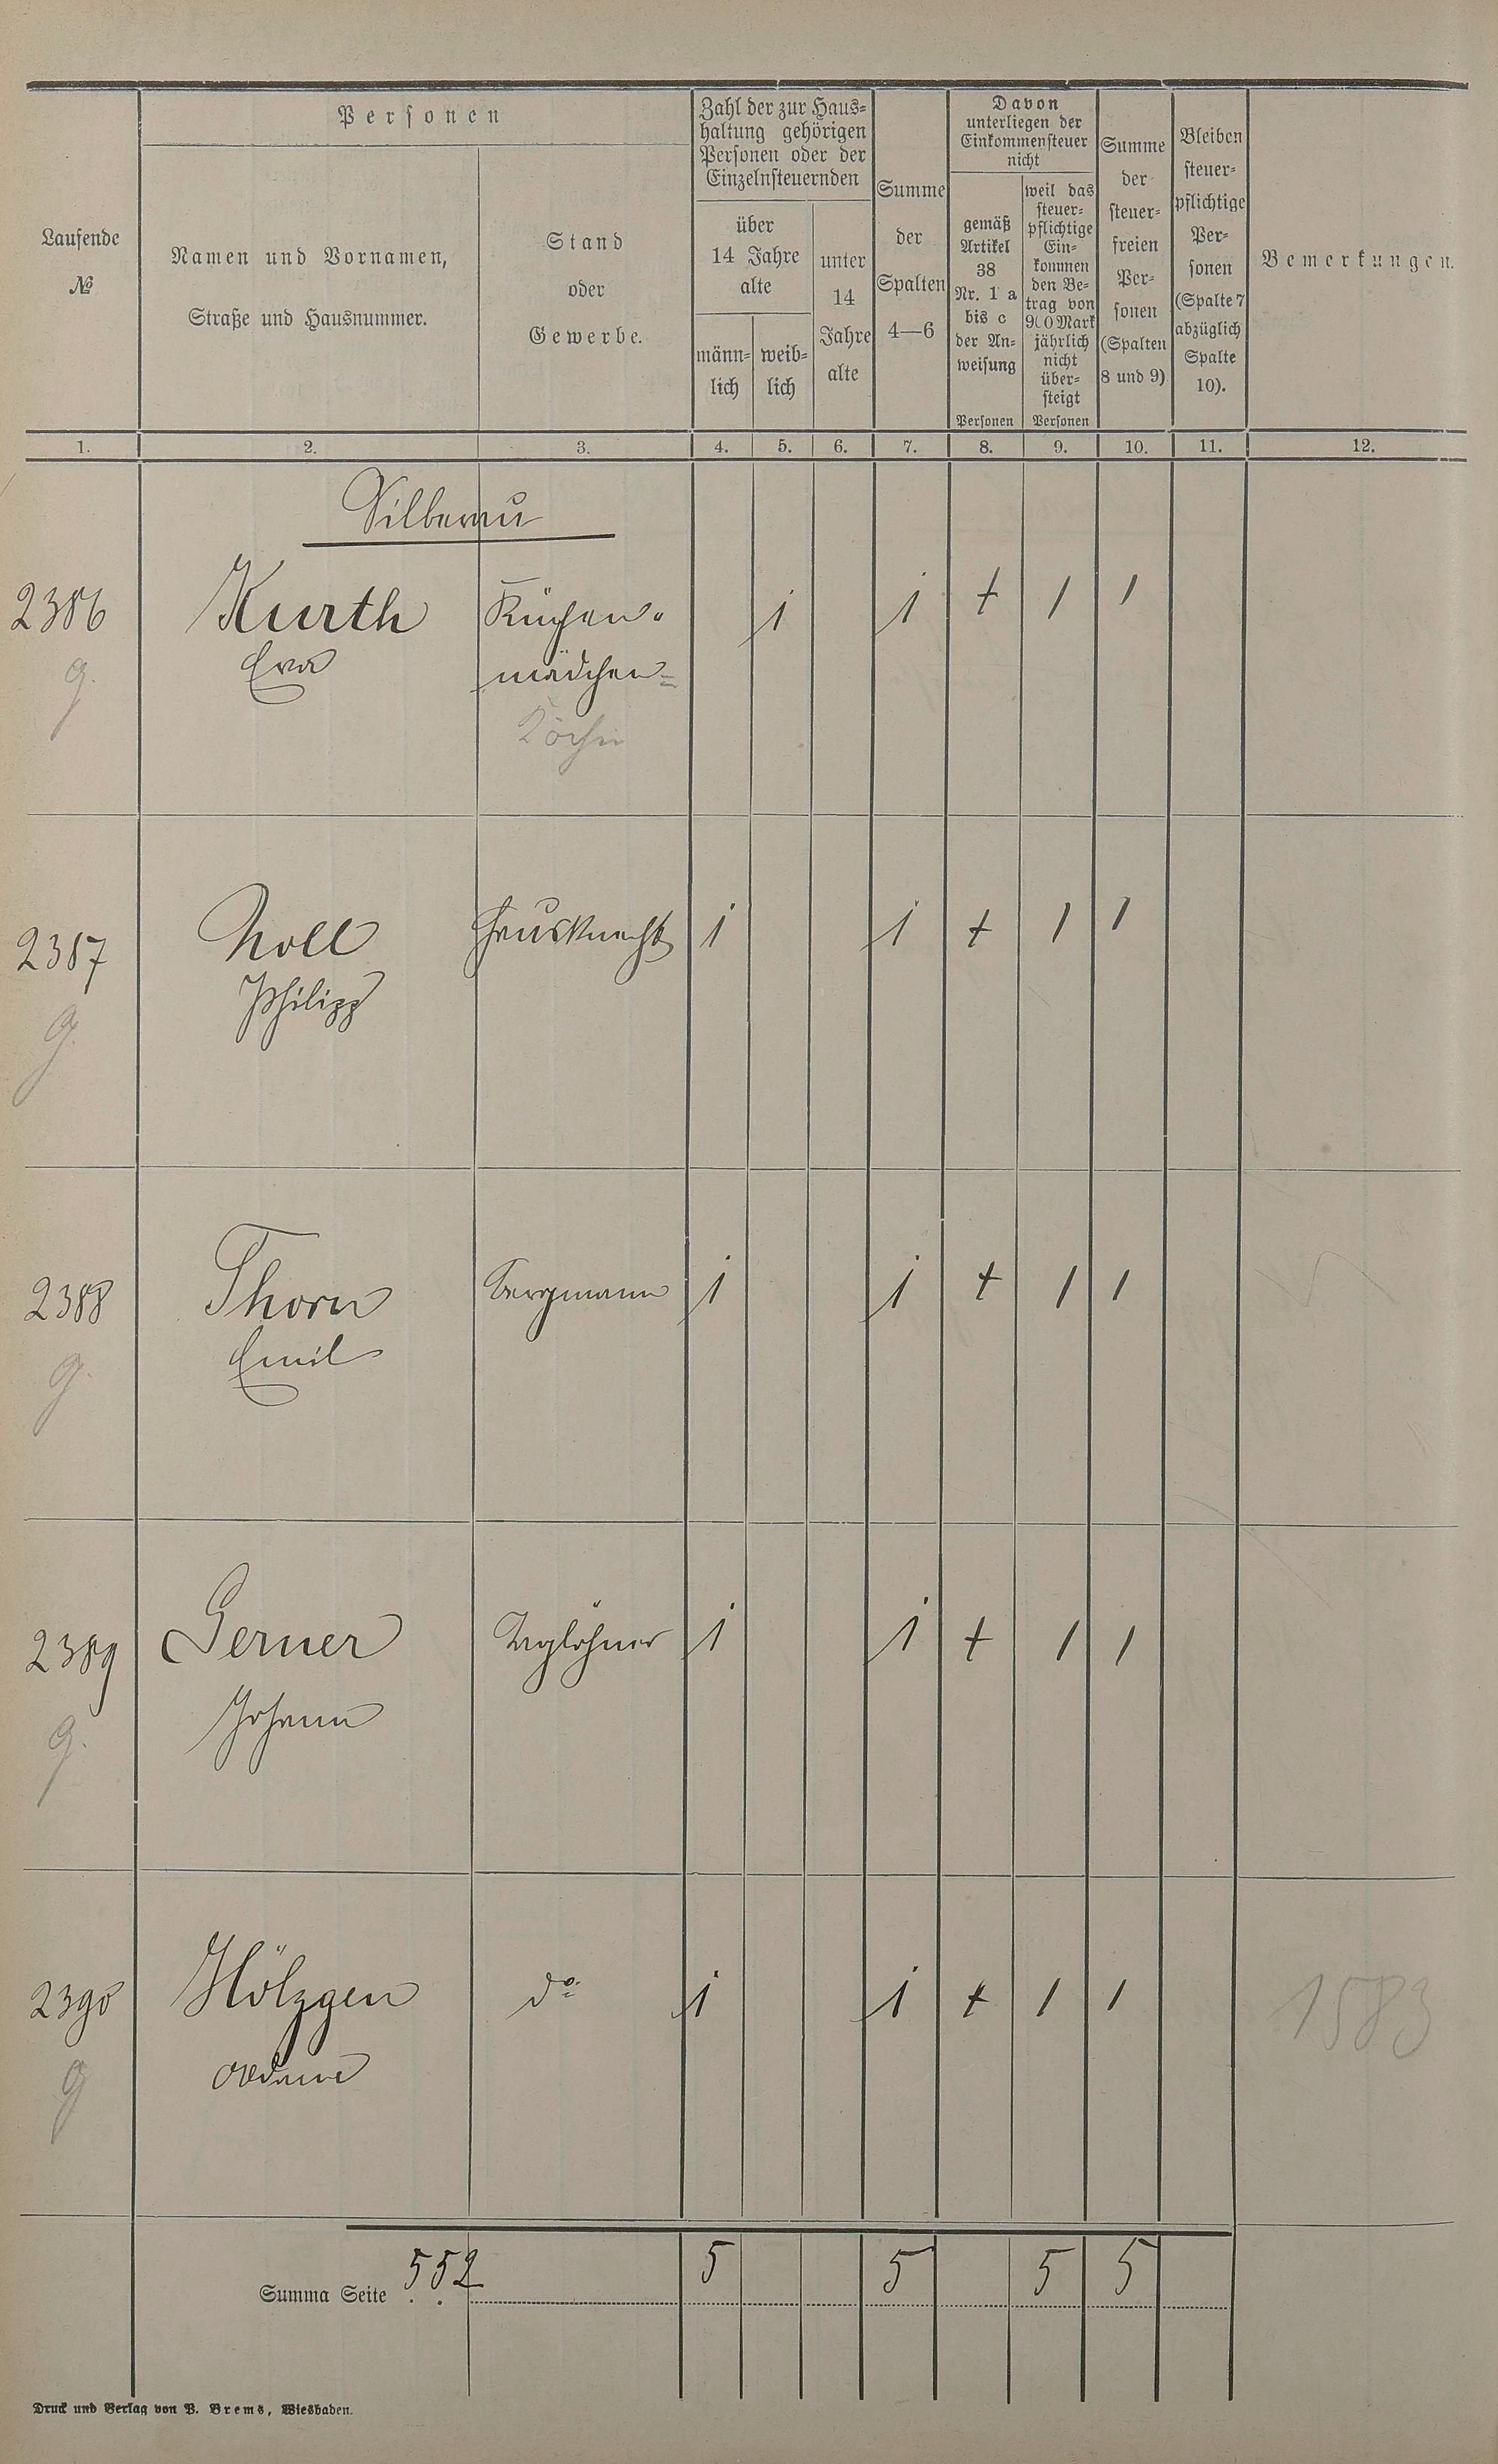 Laufende
№
Personen
Namen und Vornamen,
Straße und Hausnummer.
Stand
oder
Gewerbe.
Zahl der zur Haus-
haltung gehörigen
Personen oder der
Einzelnsteuernden
über
14 Jahre
alte
männ-
lich
weib-
lich
unter
14
Jahre
alte
Summe
der
Spalten
4—6
Davon
unterliegen der
Einkommensteuer
nicht
gemäß
Artikel
38
Nr. 1 a
bis c
der An-
weisung
Personen
weil das
steuer-
pflichtige
Ein-
kommen
den Be-
trag von
900 Mark
jährlich
nicht
über-
steigt
Personen
Summe
der
steuer-
freien
Per-
sonen
(Spalten
8 und 9)
Bleiben
steuer-
pflichtige
Per-
sonen
(Spalte 7
abzüglich
Spalte
10).
Bemerkungen.
1. 2. 3. 4. 5. 6. 7. 8. 9. 10. 11. 12.
Silberau
2386 Kurth Küchen- 1 1 + 1 1
g. Eva mädchen
Köchin
2387 Noll Hausknecht 1 1 + 1 1
g. Philipp
2388 Thorn Bergmann 1 1 + 1 1
g. Emil
2389 Gerner Taglöhner 1 1 + 1 1
g. Johann
2390 Hölzgen do 1 1 + 1 1 1583
g Adam
Summa Seite 552 5 5 5 5
Druck und Verlag von P. Brems, Wiesbaden.